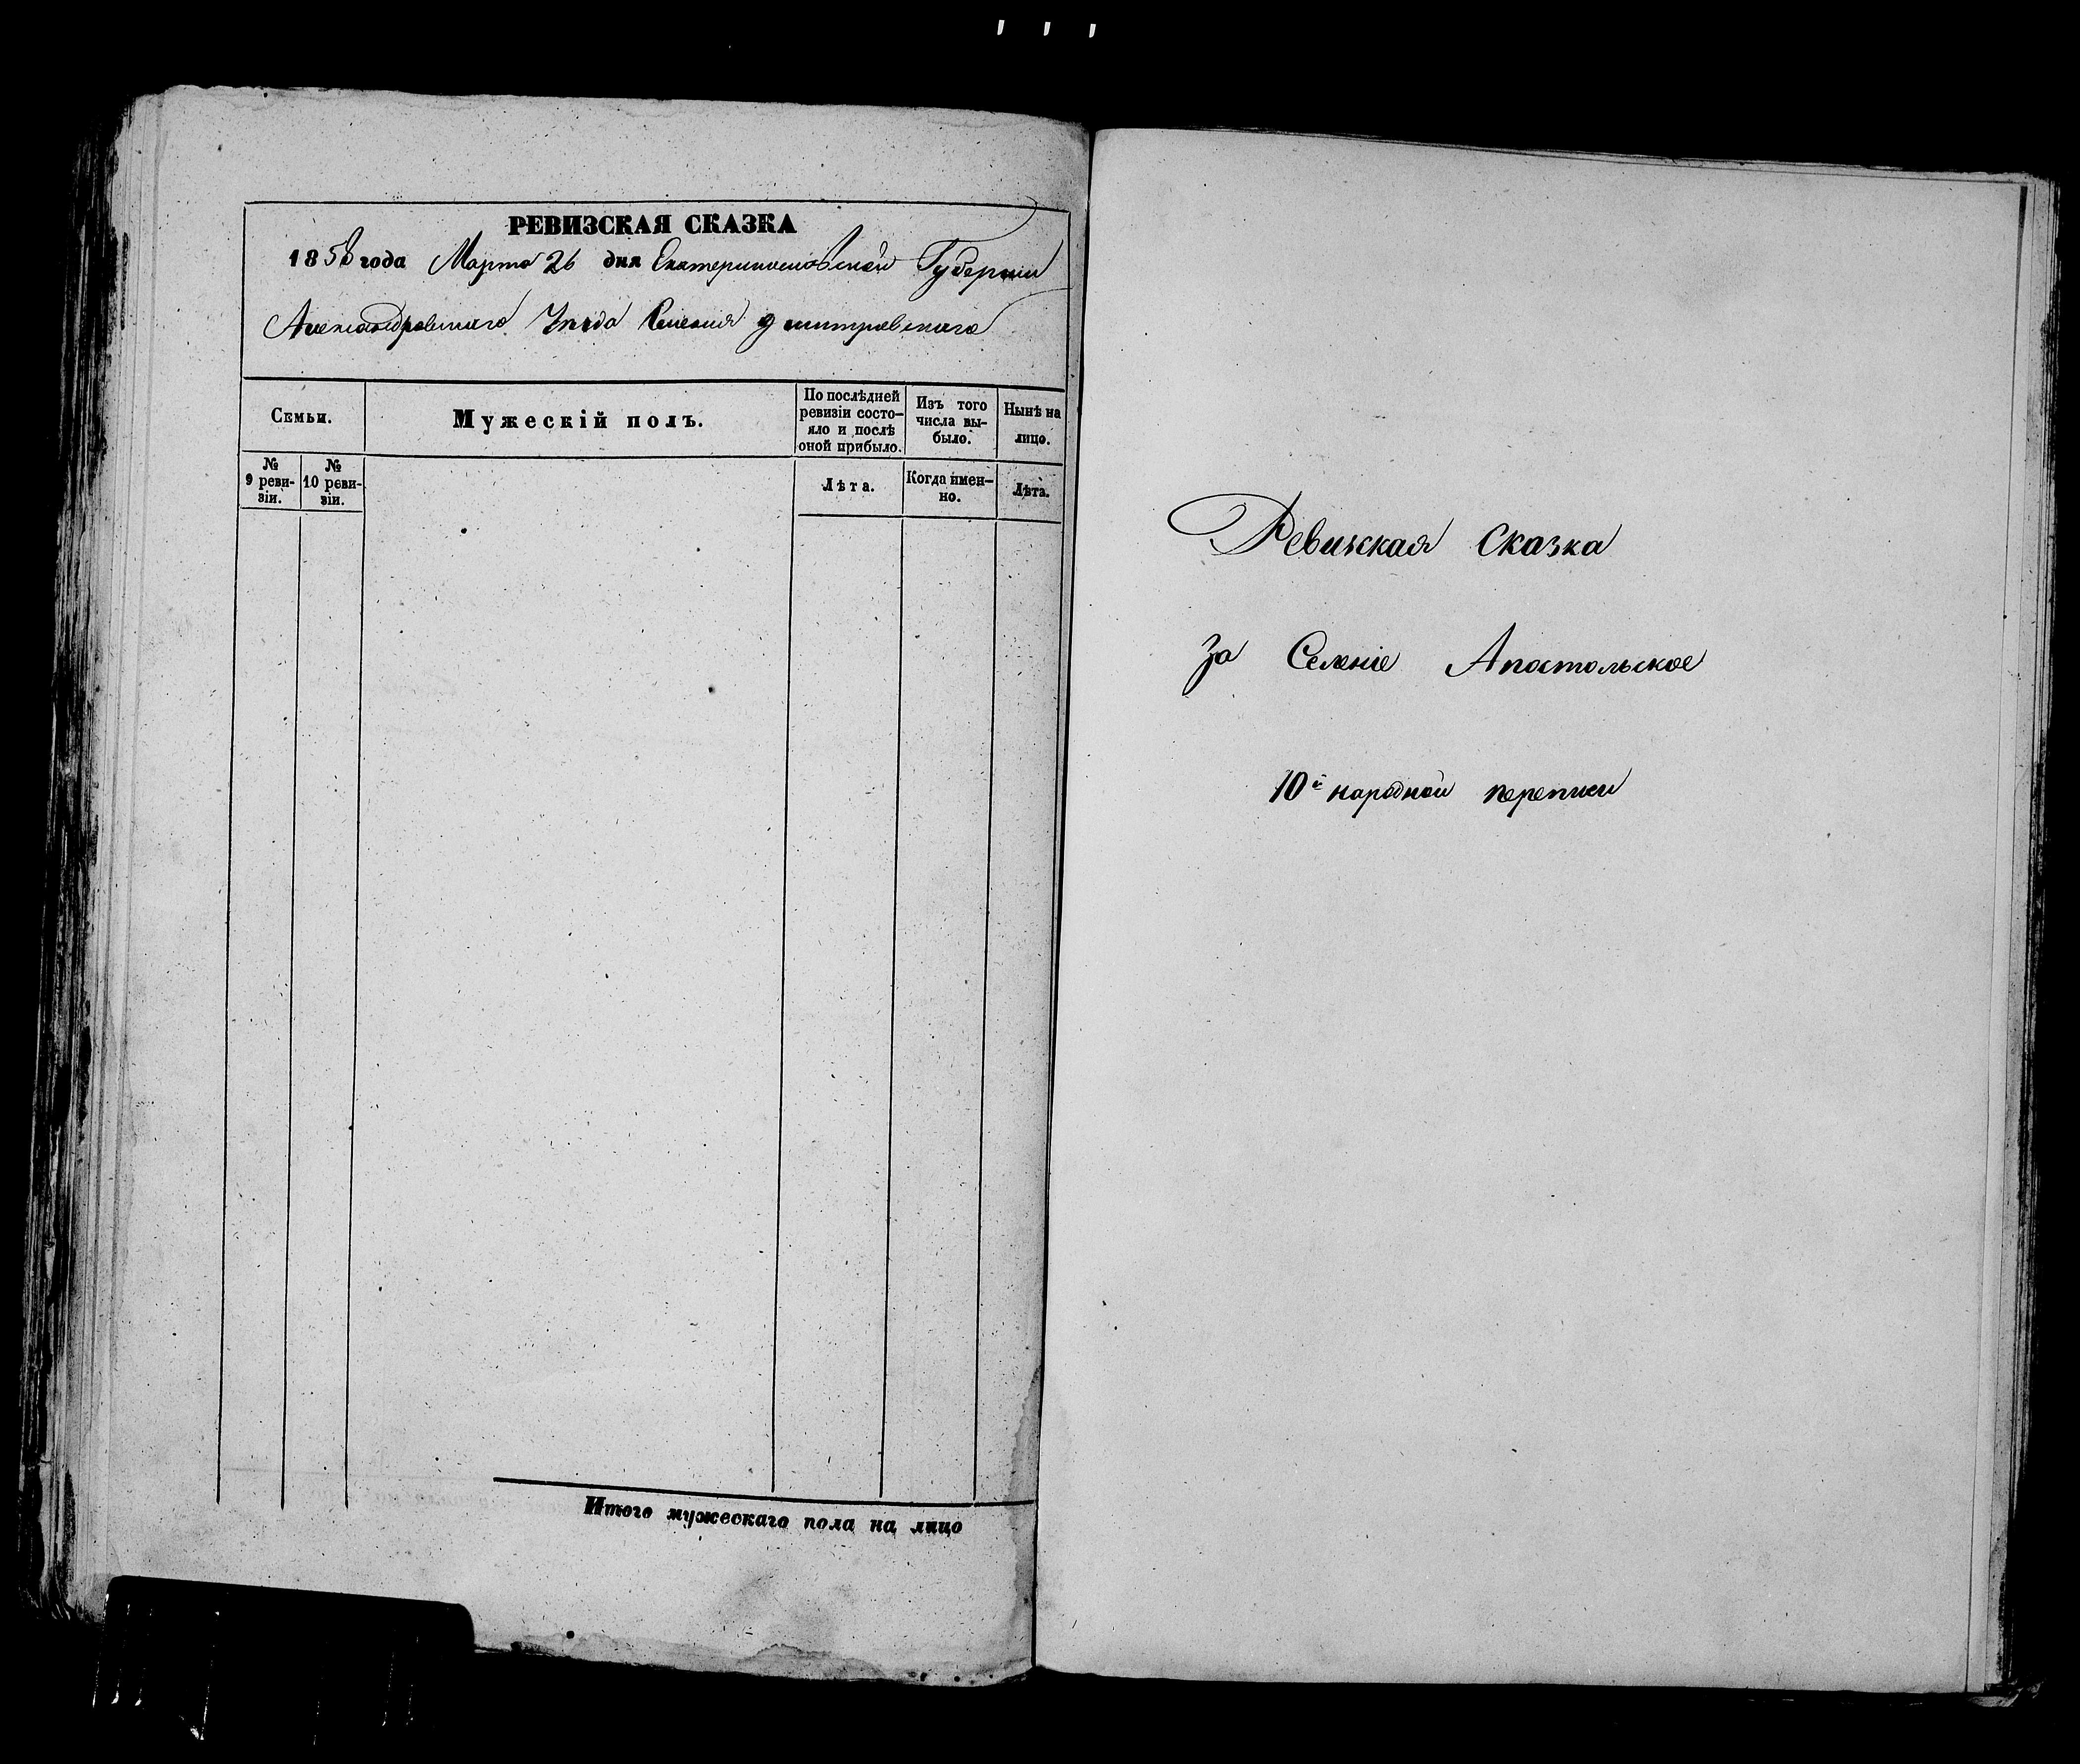 РЕВИЗСКАЯ СКАЗКА
1858 года Марта 26 дня Екатеринославской Губерніи
Александровскаго Уѣзда Селенія Дмитровскаго
Семьи.
Мужескій полъ.
По послѣдней
ревизіи состо-
яло и послѣ
оной прибыло.
Изъ того
числа вы-
было.
Нынѣ на
лицо.
№
9 реви-
зіи.
№
10 реви-
зіи.
Лѣта.
Когда имен-
но.
Лѣта.
Итого мужескаго пола на лицо
Ревизская Сказка
За Селеніе Апостольское
10й народной переписи